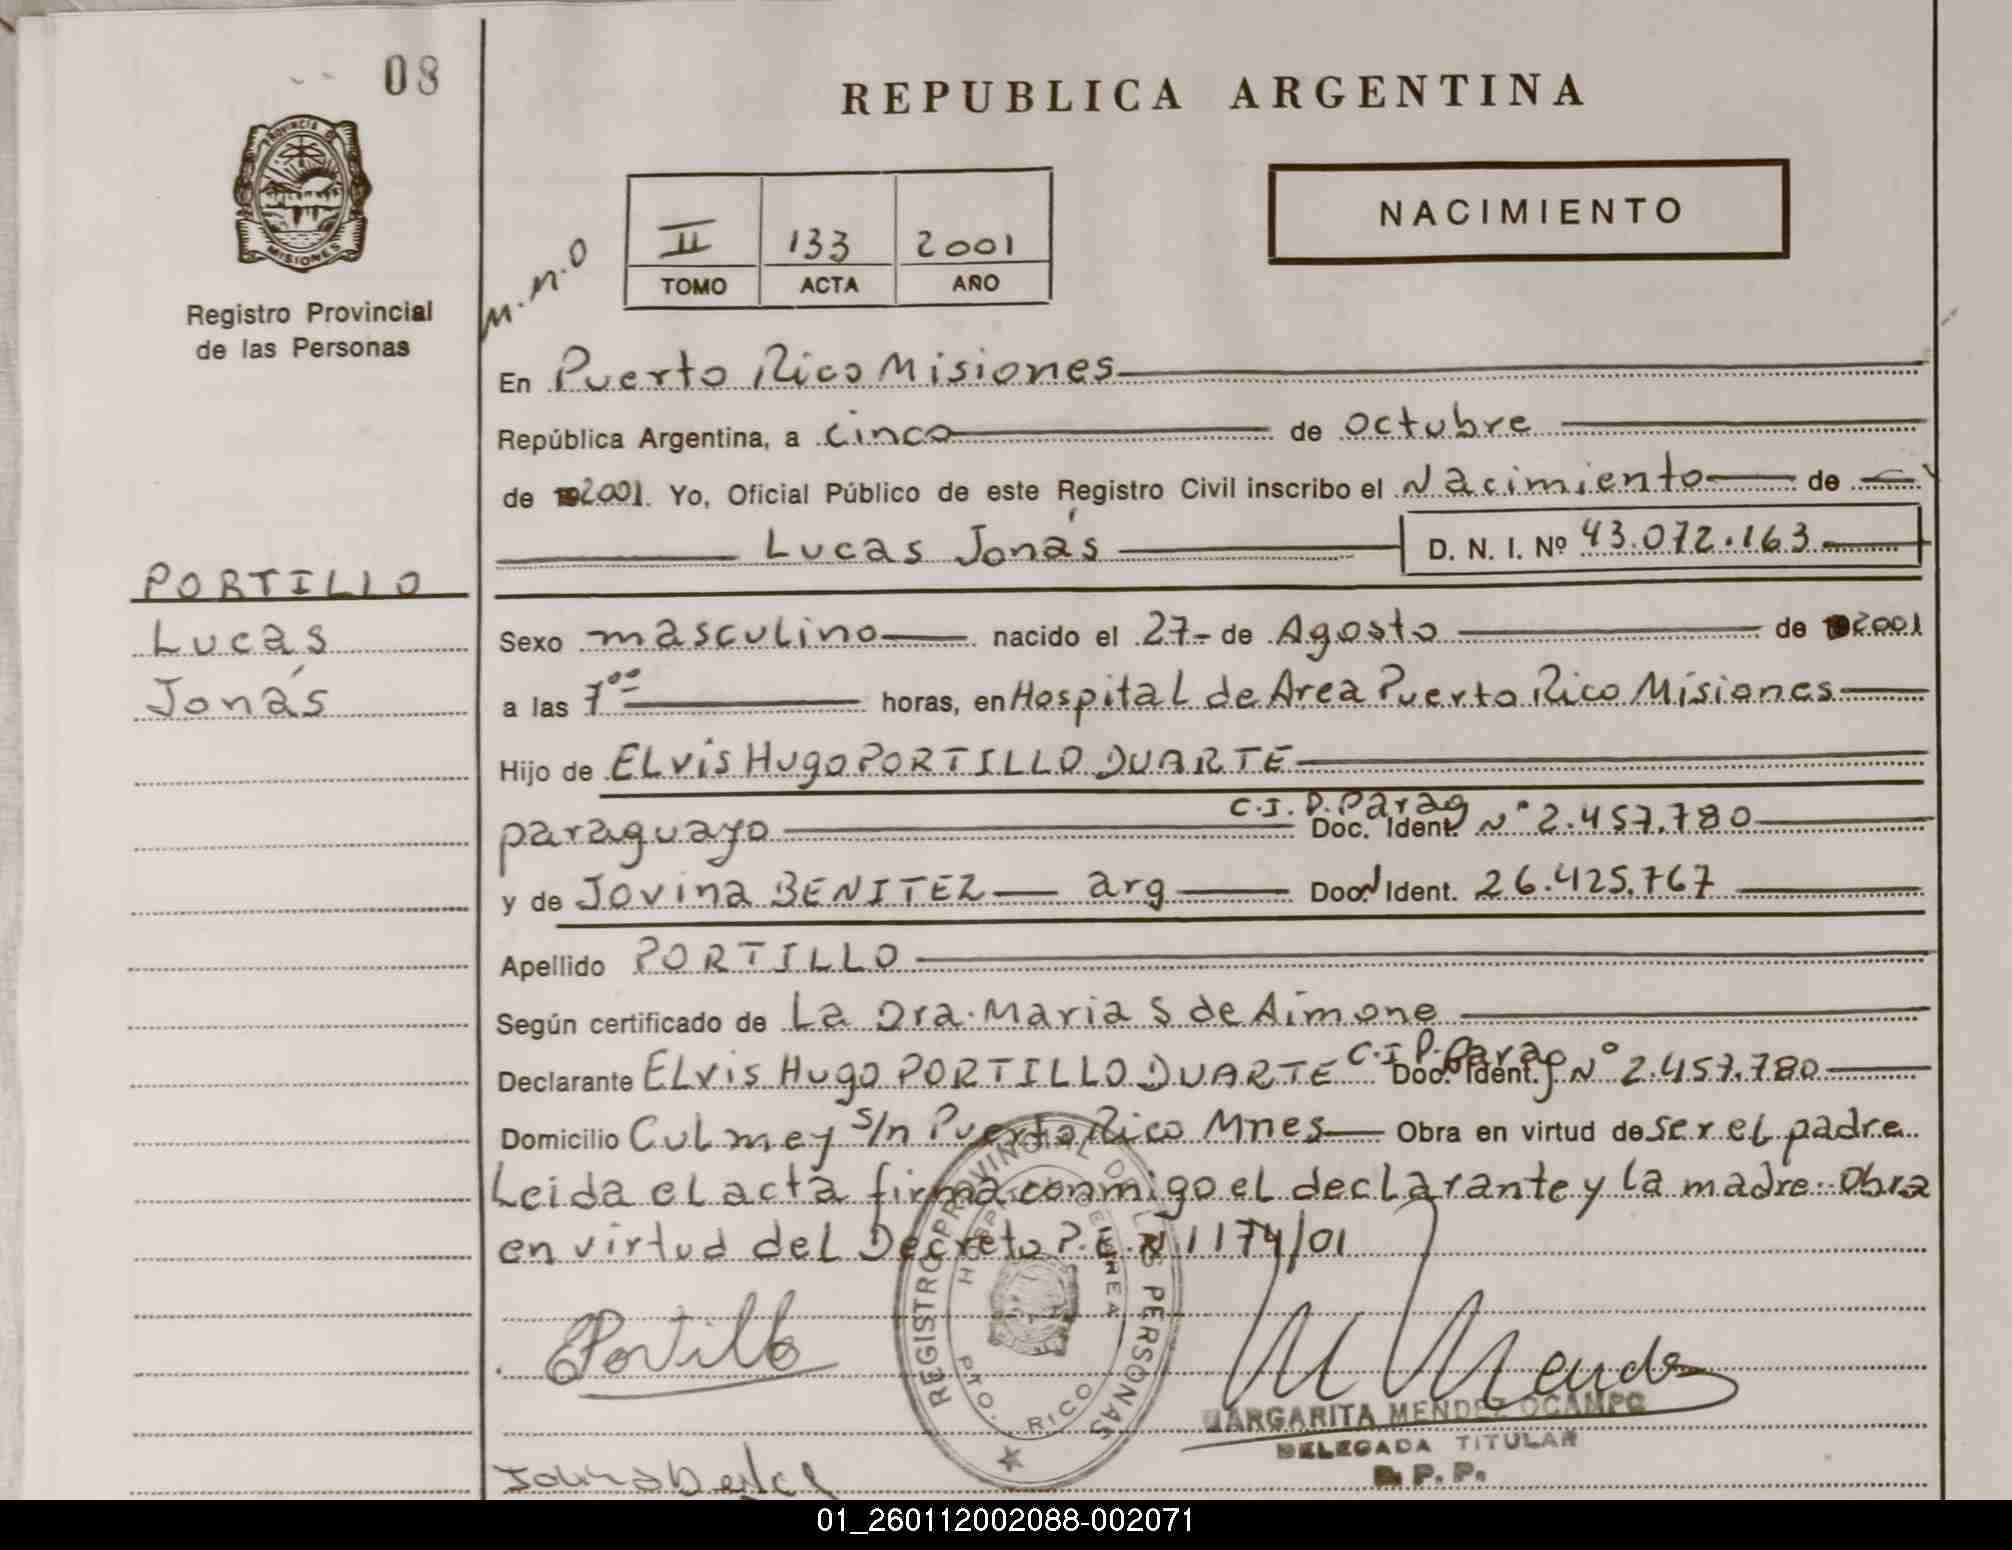 08
REPUBLICA ARGENTINA
PROVINCIA DE
MISIONES
Registro Provincial
de las Personas
NACIMIENTO
II 133 2001
TOMO ACTA AÑO
M.N.O
En Puerto Rico Misiones
República Argentina, a cinco de octubre
de 2001. Yo, Oficial Público de este Registro Civil inscribo el Nacimiento de
Lucas Jonás D. N. I. Nº 43.072.163
PORTILLO
Lucas
Jonás
Sexo masculino nacido el 27- de Agosto de 2001
a las 7⁰⁰ horas, en Hospital de Area Puerto Rico Misiones
Hijo de ELvis Hugo PORTILLO DUARTE
paraguayo C.I.P.Parag Doc. Ident. N° 2.457.780
y de Jovina BENITEZ arg Doc. Ident. 26.425.767
Apellido PORTILLO
Según certificado de La Dra. Maria S de Aimone
Declarante ELvis Hugo PORTILLO DUARTE C.I.P.Parag Doc. Ident. N° 2.457.780
Domicilio Culmey s/n Puerto Rico Mnes Obra en virtud de ser el padre
Leida el acta firma conmigo el declarante y la madre.. Obra
en virtud del Decreto P.E.N 1174/01
REGISTRO PROVINCIAL DE LAS PERSONAS
HOSPITAL DE AREA
PTO. RICO
Portillo
MARGARITA MENDEZ OCAMPO
DELEGADA TITULAR
R. P. P.
01_260112002088-002071